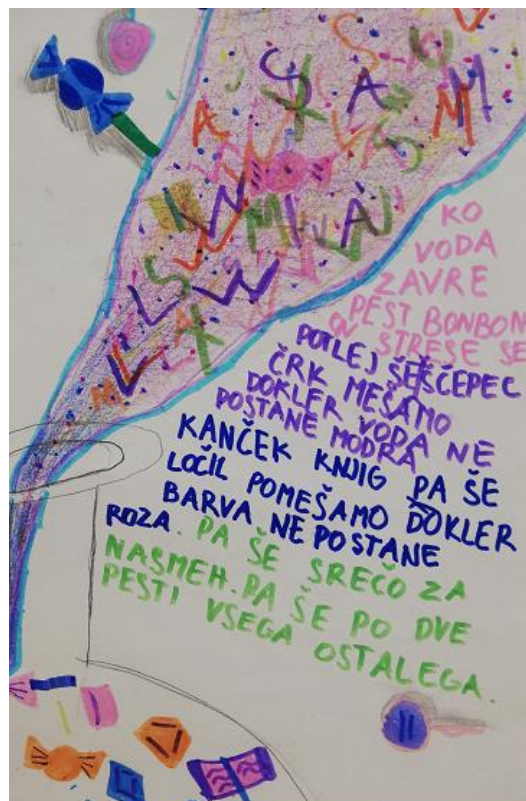 KO
VODA
ZAVRE
PEST BONBON
OV STRESE SE
POTLEJ ŠE ŠČEPEC
ČRK MEŠAMO
DOKLER VODA NE
POSTANE MODRA
KANČEK KNJIG PA ŠE
LOČIL POMEŠAMO DOKLER
BARVA NE POSTANE
ROZA. PA ŠE SREČO ZA
NASMEH. PA ŠE PO DVE
PESTI VSEGA OSTALEGA.